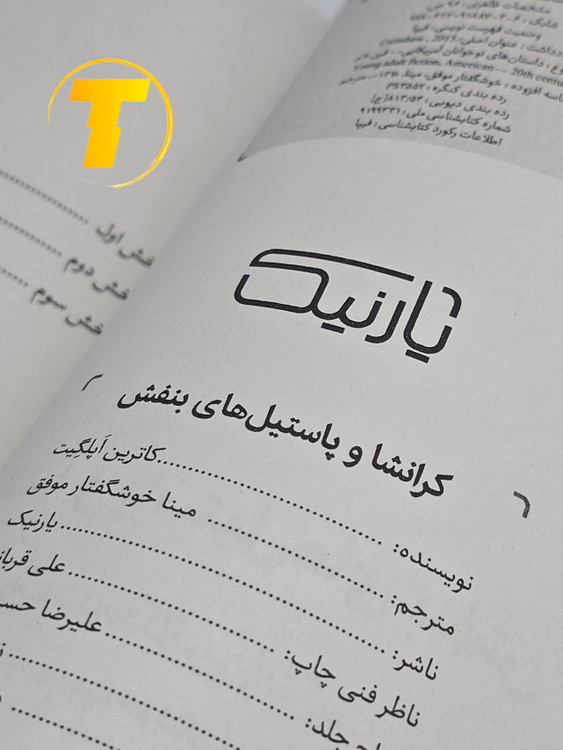 مشخصات ظاهری: ۹۶ ص
وضعیت فهرست نویسی: فیپا
یادداشت: عنوان اصلی: Crenshaw, 2015
داستان‌های نوجوانان آمریکایی -- قرن
Young adult fiction, American -- 20th century
شناسه افزوده: خوشگفتار موفق، مینا، ۱۳۶۰، مترجم
رده بندی کنگره: PS۳۵۵۲
رده بندی دیویی: ۸۱۳/۵۴[ج]
شماره کتابشناسی ملی: ۹۱۹۹۳۳۱
اطلاعات رکورد کتابشناسی: فیپا
T
بخش اول
بخش دوم
بخش سوم
یارنیک
کرانشا و پاستیل‌های بنفش
نویسنده: کاترین اَپلگِیت
مترجم: مینا خوشگفتار موفق
ناشر: یارنیک
ناظر فنی چاپ: علی
جلد: علیرضا